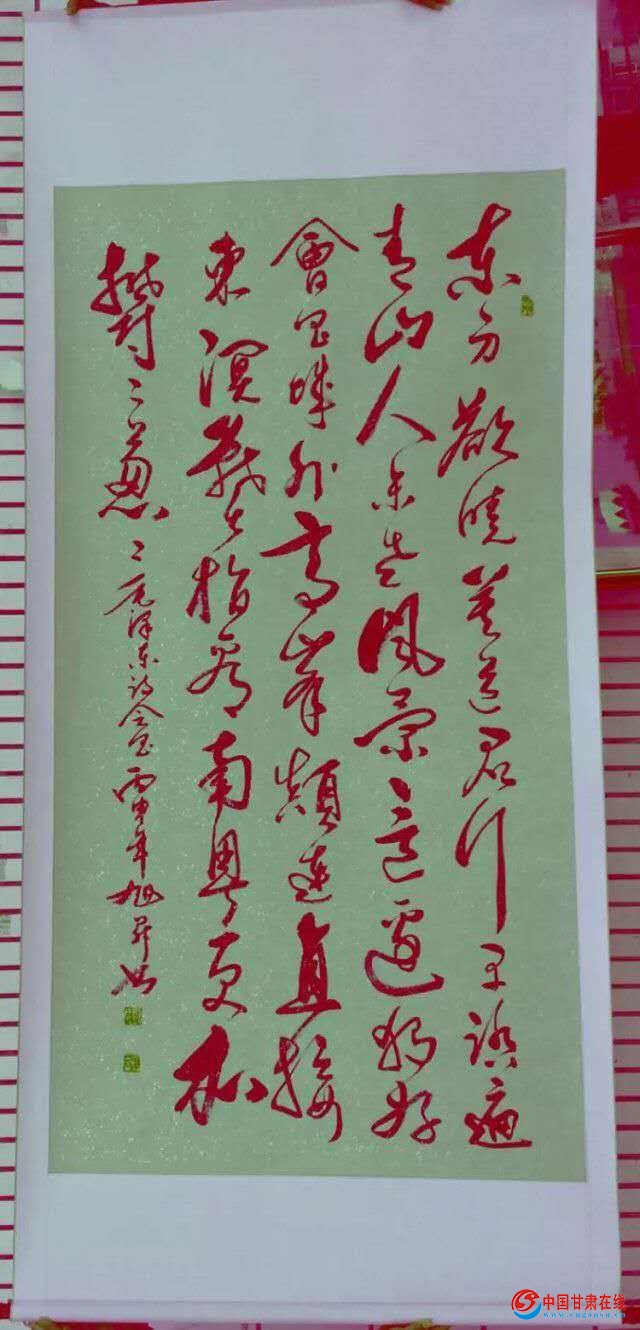 东方欲晓莫道君行早踏遍
青山人未老風景这邊独好
會昌城外高峰颠連直接
東溟战士指看南粤更加
郁〻葱〻毛泽东会昌丙申年旭书
中国甘肃在线
www.cngansu.cn